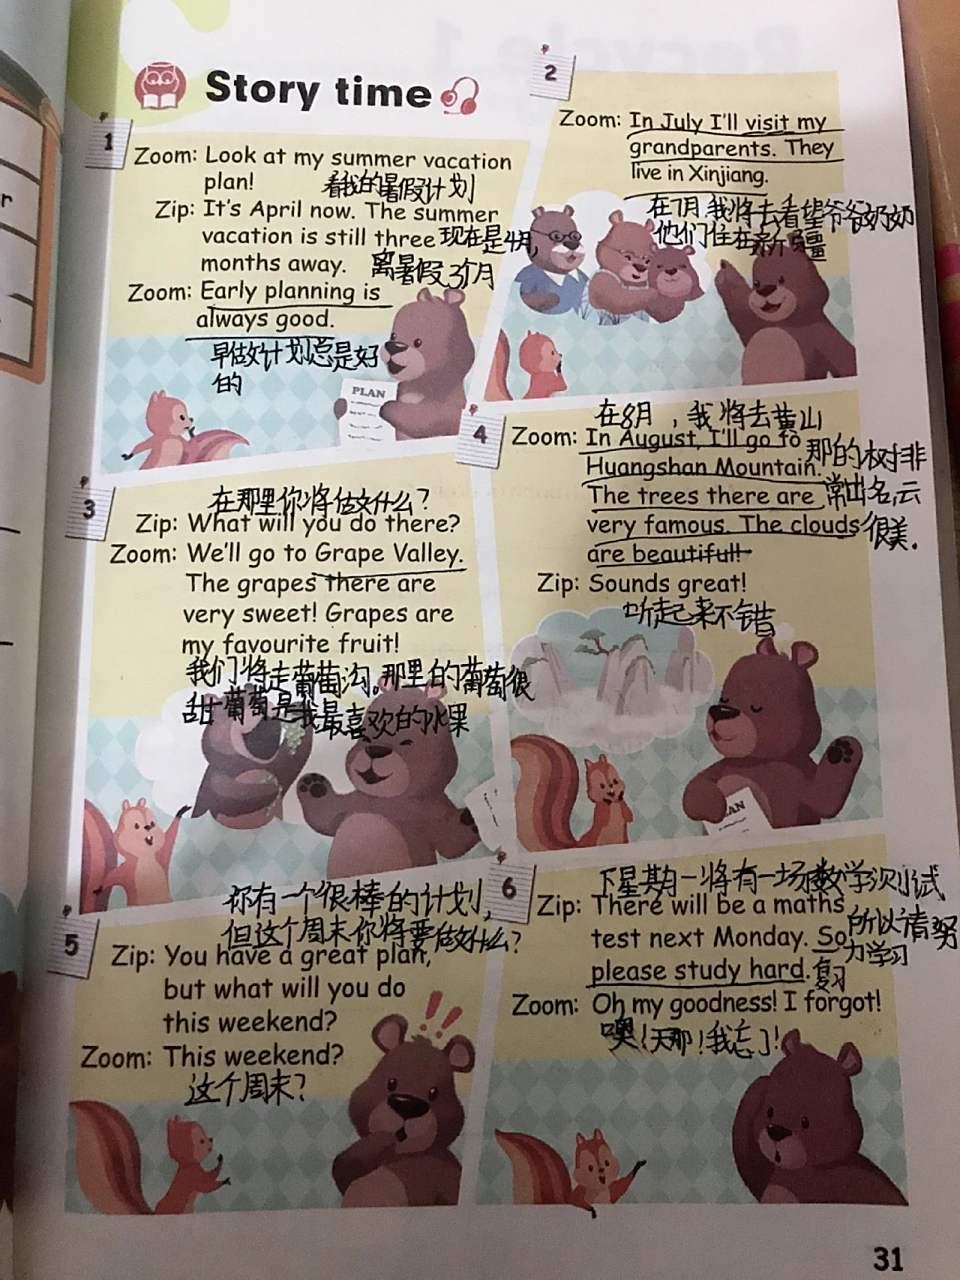 Story time
1
Zoom: Look at my summer vacation
plan!
看我的暑假计划
Zip: It's April now. The summer
vacation is still three
months away.
现在是4月,
离暑假3个月
Zoom: Early planning is
always good.
早做计划总是好
的
PLAN
2
Zoom: In July I'll visit my
grandparents. They
live in Xinjiang.
在7月,我将去看望爷爷奶奶
他们住在新疆
3
在那里你将做什么?
Zip: What will you do there?
Zoom: We'll go to Grape Valley.
The grapes there are
very sweet! Grapes are
my favourite fruit!
我们将走葡萄沟。那里的葡萄很
甜葡萄是我最喜欢的水果
4
在8月,我将去黄山
Zoom: In August, I'll go to
Huangshan Mountain.
The trees there are
very famous. The clouds
are beautiful!
那的树非
常出名,云
很美.
Zip: Sounds great!
听起来不错
AN
5
你有一个很棒的计划,
但这个周末你将要做什么?
Zip: You have a great plan,
but what will you do
this weekend?
Zoom: This weekend?
这个周末?
6
下星期一将有一场数学测试
Zip: There will be a maths
test next Monday. So
please study hard.
所以请努
力学习
复习
Zoom: Oh my goodness! I forgot!
噢!天那!我忘了!
31